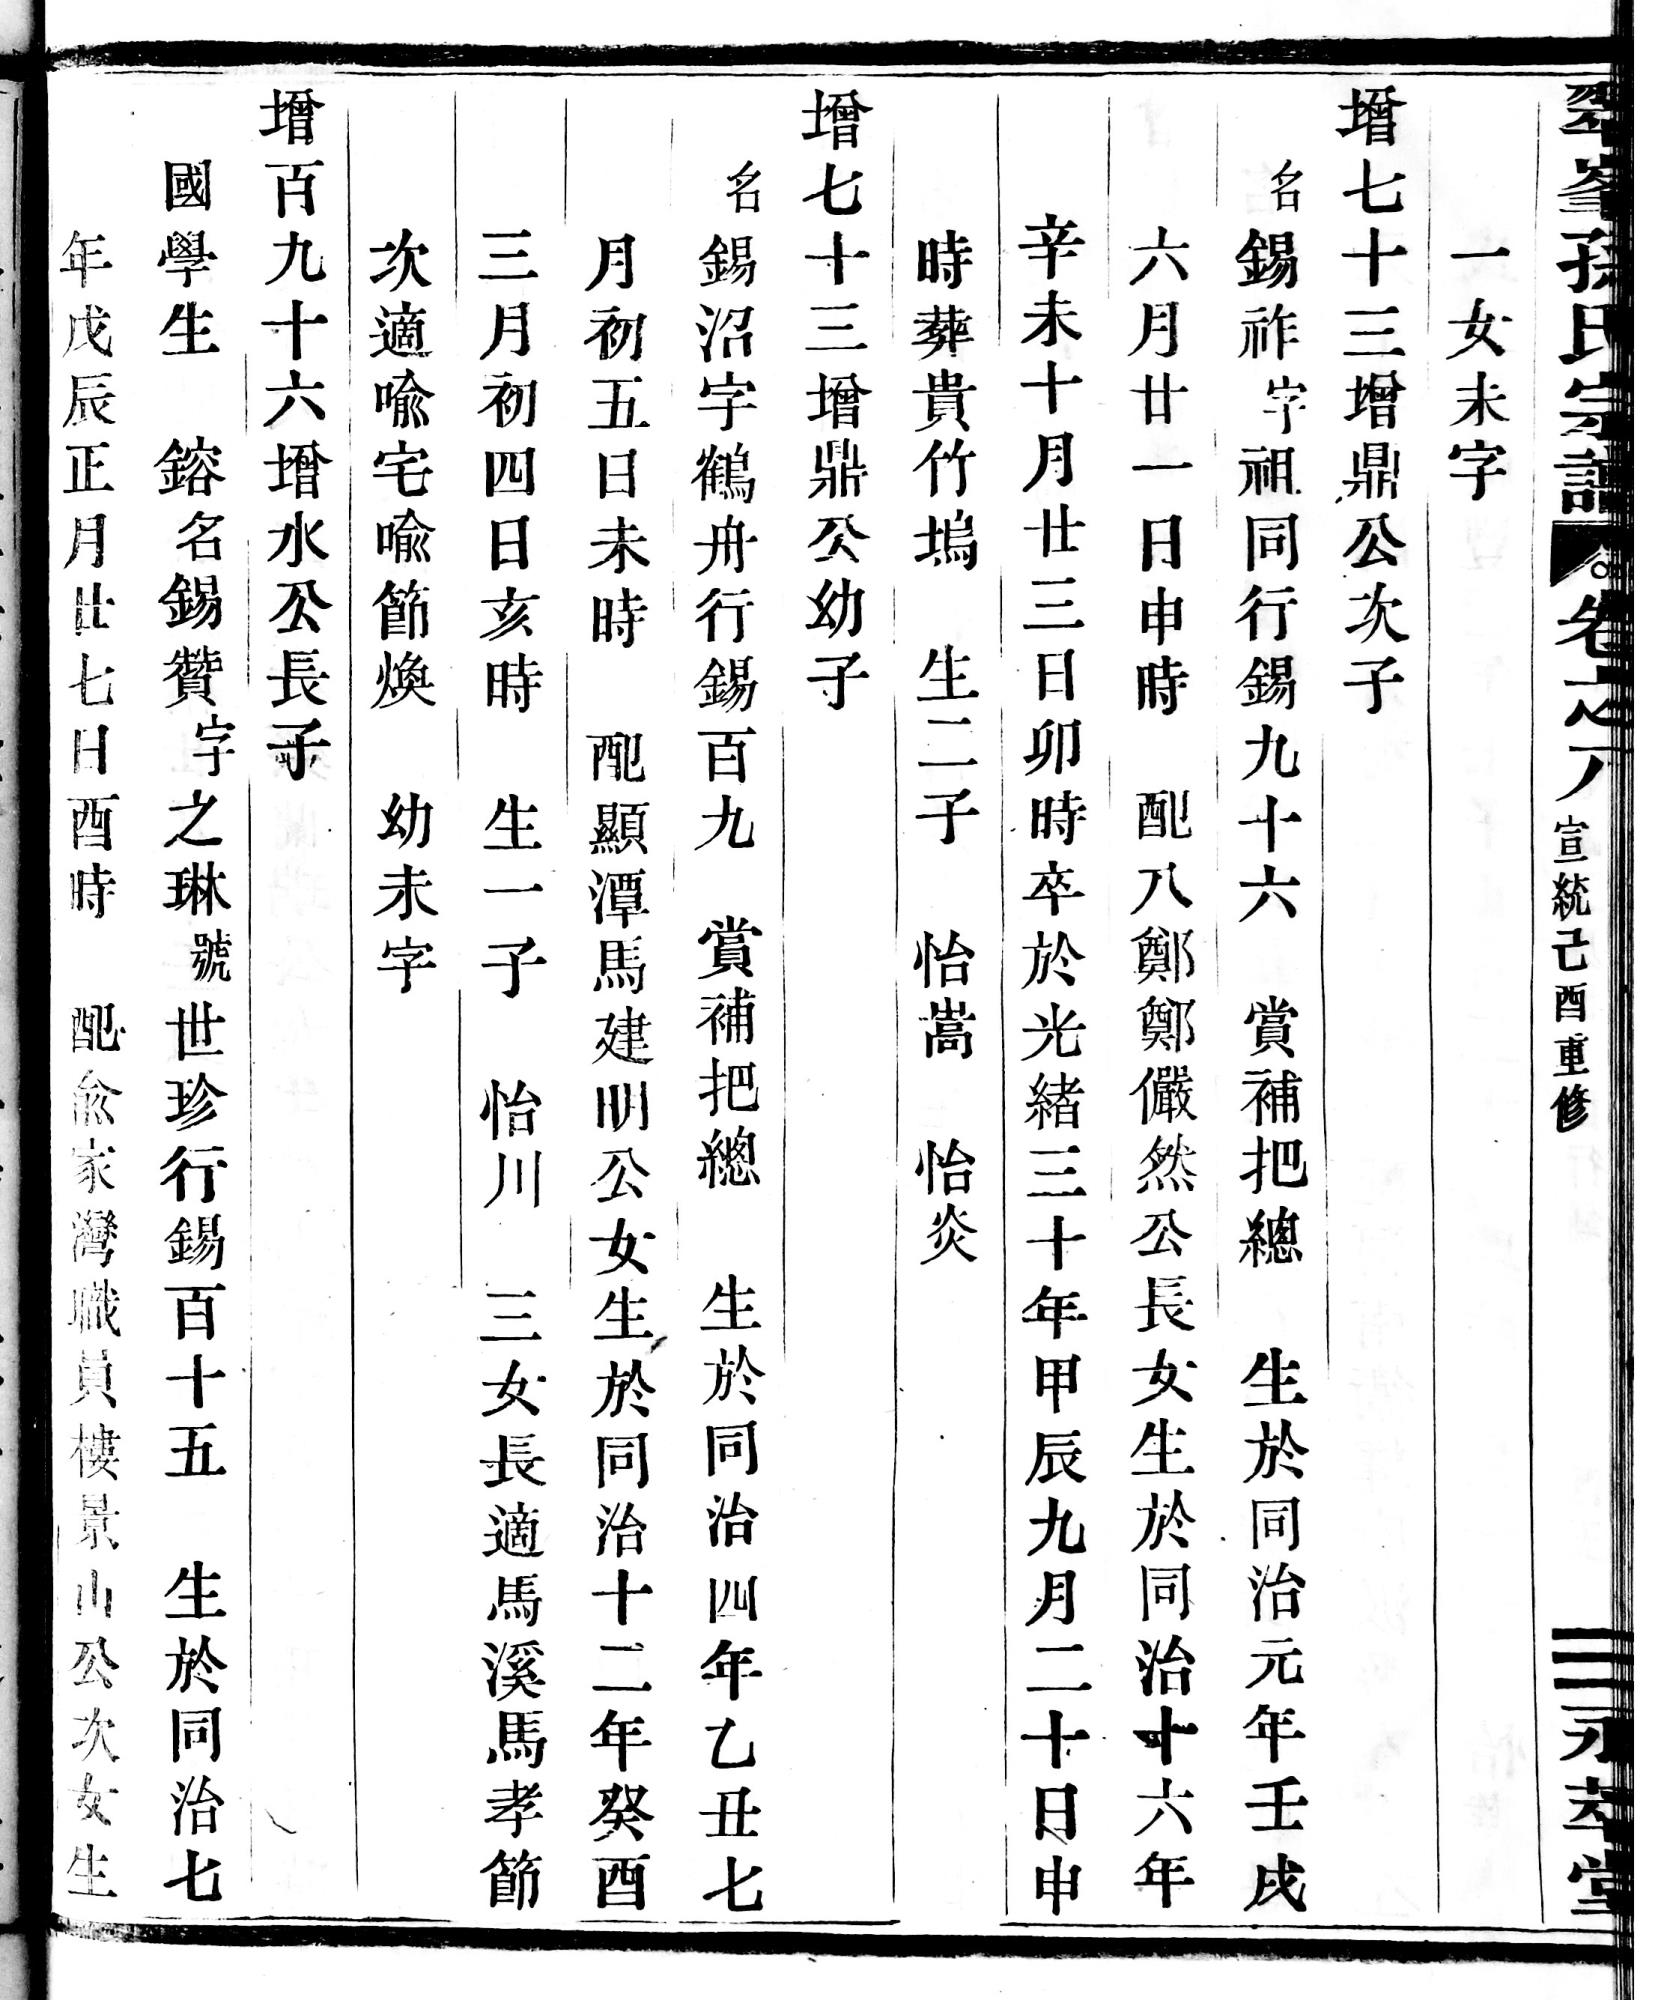 翠峯孫氏宗譜 卷之八 宣統己酉重修 三 永萃堂
一女未字
增七十三增鼎公次子
名錫祚字祖同行錫九十六 賞補把總 生於同治元年壬戌
六月廿一日申時 配八鄭鄭儼然公長女生於同治十六年
辛未十月廿三日卯時卒於光緒三十年甲辰九月二十日申
時葬貴竹塢 生二子 怡嵩 怡炎
增七十三增鼎公幼子
名錫沼字鶴舟行錫百九 賞補把總 生於同治四年乙丑七
月初五日未時 配顯潭馬建明公女生於同治十二年癸酉
三月初四日亥時 生一子 怡川 三女長適馬溪馬孝節
次適喩宅喩節煥 幼未字
增百九十六增水公長子
國學生 鎔名錫贊字之琳號世珍行錫百十五 生於同治七
年戊辰正月廿七日酉時 配俞家灣職員樓景山公次女生